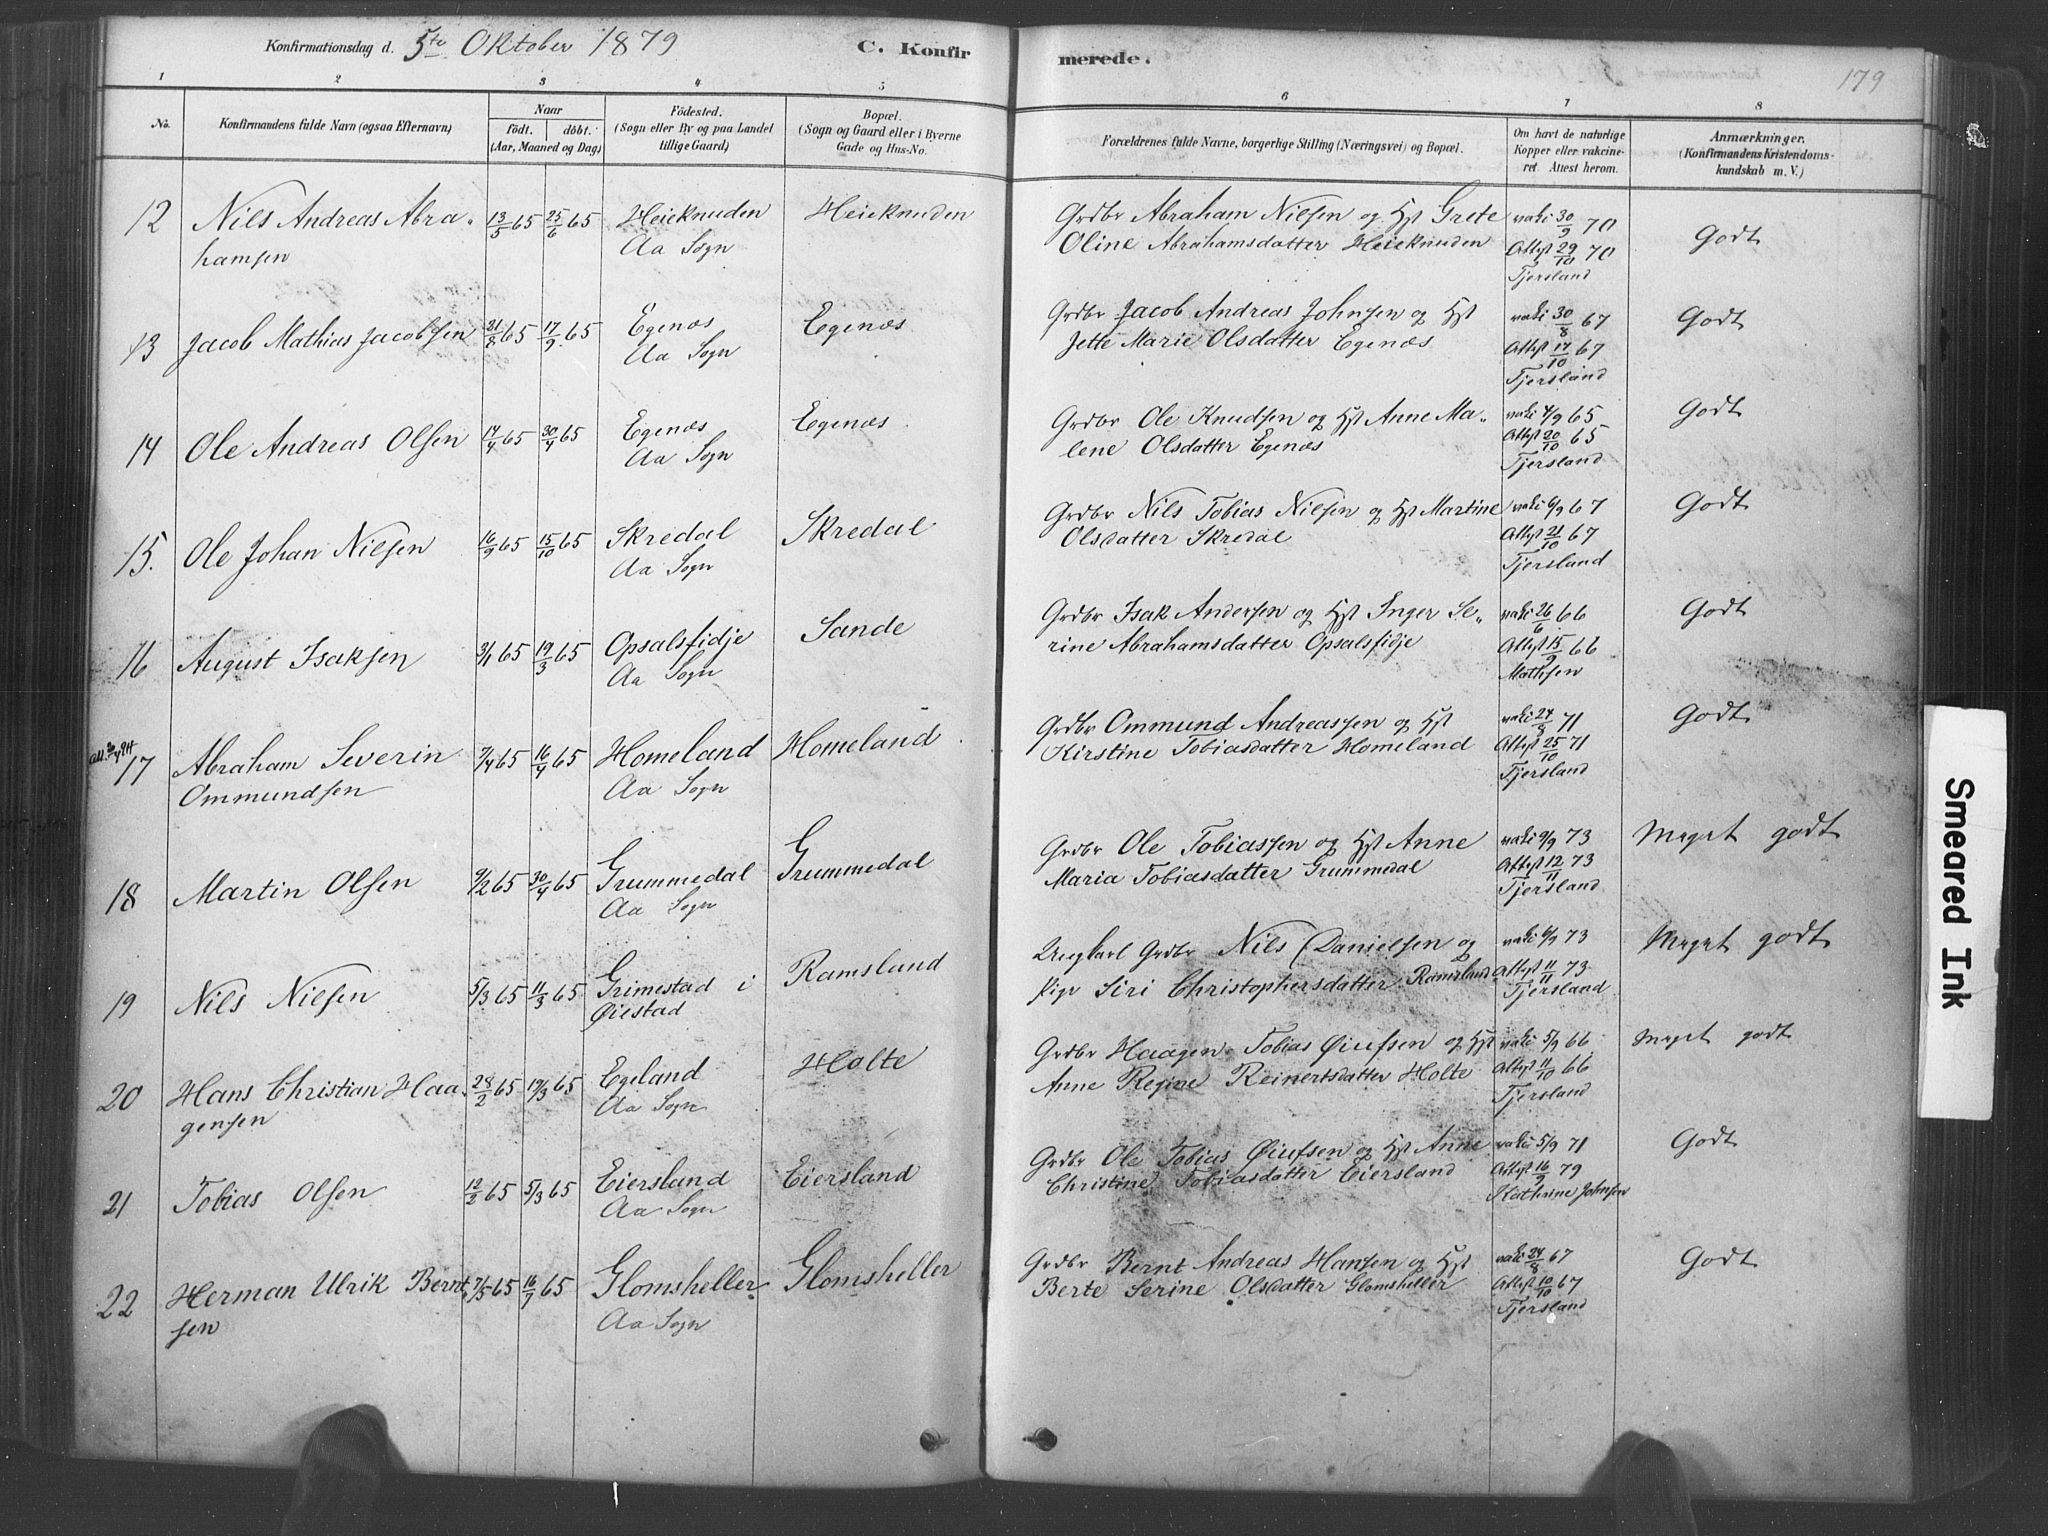 Konfirmationsdag d. 5te Oktober 1879 C. Konfir merede. 179
1 2 3 4 5 6 7 8
No. Konfirmandens fulde Navn (ogsaa Efternavn) Naar født. døbt. (Aar, Maaned og Dag) Födested. (Sogn eller By og paa Landet tillige Gaard) Bopæl. (Sogn og Gaard eller i Byerne Gade og Hus-No. Forældrenes fulde Navne, borgerlige Stilling (Næringsvei) og Bopæl. Om havt de naturlige Kopper eller vakcineret Attest herom. Anmærkninger. (Konfirmandens Kristendomskundskab m. V.)
12 Nils Andreas Abra- 13/5 65 25/6 65 Heieknuden Heieknuden Grdbr Abraham Nilsen og Hst Grete vaki 30/9 70 Godt
hamsen Aa Sogn Oline Abrahamsdatter Heieknuden Attest 29/10 70
Tjersland
13 Jacob Mathias Jacobsen 31/8 65 17/9 65 Egenæs Egenæs Grdbr Jacob Andreas Johnsen og Hst vaki 30/8 67 Godt
Aa Sogn Jette Marie Olsdatter Egenæs Attest 17/10 67
Tjersland
14 Ole Andreas Olsen 17/4 65 30/4 65 Egenæs Egenæs Grdbr Ole Knudsen og Hst Anne Ma- vaki 4/9 65 Godt
Aa Sogn lene Olsdatter Egenæs Attest 20/10 65
Tjersland
15. Ole Johan Nilsen 16/9 65 15/10 65 Skredal Skredal Grdbr Nils Tobias Nilsen og Hst Martine vaki 6/9 67 Godt
Aa Sogn Olsdatter Skredal Attest 21/10 67
Tjersland
16 August Isaksen 3/1 65 19/3 65 Opsalsfidje Sande Grdbr Isak Andersen og Hst Inger Se- vaki 26/6 66 Godt
Aa Sogn rine Abrahamsdatter Opsalsfidje Attest 15/9 66
Mathsen
17 Abraham Severin 7/4 65 16/4 65 Homeland Homeland Grdbr Ommund Andreassen og Hst vaki 24/8 71 Godt
Ommundsen Aa Sogn Kirstine Tobiasdatter Homeland Attest 25/10 71
Tjersland
18 Martin Olsen 9/2 65 30/4 65 Grummedal Grummedal Grdbr Ole Tobiassen og Hst Anne vaki 9/9 73 Meget godt
Aa Sogn Maria Tobiasdatter Grummedal Attest 12/11 73
Tjersland
19 Nils Nilsen 5/3 65 11/3 65 Grimestad i Ramsland Ungkarl Grdbr Nils Danielsen og vaki 6/9 73 Meget godt
Øiestad Pige Siri Christophersdatter Ramsland Attest 11/11 73
Tjersland
20 Hans Christian Haa- 28/2 65 19/3 65 Egeland Holte Grdbr Haagen Tobias Øiufsen og Hst vaki 5/9 66 Meget godt
gensen Aa Sogn Anne Regine Reinertsdatter Holte Attest 11/10 66
Tjersland
21 Tobias Olsen 12/2 65 5/3 65 Eiersland Eiersland Grdbr Ole Tobias Øiufsen og Hst Anne vaki 5/9 71 Godt
Aa Sogn Christine Tobiasdatter Eiersland Attest 16/9 79
Kathrine Johnsen
22 Herman Ulrik Bernt 7/5 65 16/7 65 Glomsheller Glomsheller Grdbr Bernt Andreas Hansen og Hst vaki 24/8 67 Godt
sen Aa Sogn Berte Serine Olsdatter Glomsheller Attest 10/10 67
Tjersland
Smeared Ink